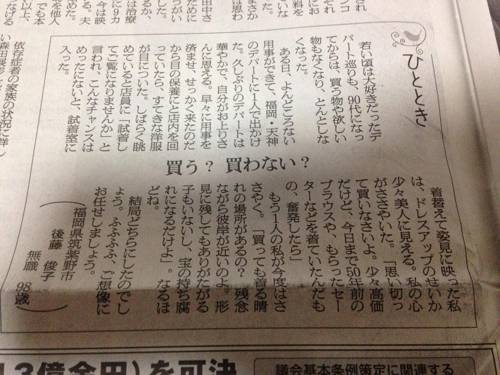 ひととき
買う？ 買わない？
若い頃は大好きだったデ
パート巡りも、90代になっ
てからは、買う物や欲しい
物もなくなり、とんとしな
くなった。
ある日、よんどころない
用事ができて、福岡・天神
のデパートに1人で出かけ
た。久しぶりのデパートは
華やかで、自分がお上りさ
んに思える。早々に用事を
済ませ、せっかく来たのだ
から目の保養にと店内を回
っていたら、すてきな洋服
が目についた。しばらく眺
めていると店員に「試着し
てご覧になりませんか」と
言われ、こんなチャンスは
めったにないと、試着室に
入った。
着替えて姿見に映った私
は、ドレスアップのせいか
少々美人に見える。私の心
がささやいた。「思い切っ
て買いなさいよ。少々高価
だけど、今日まで50年前の
ブラウスや、もらったセー
ターなどを着ていたんだも
の、奮発したら」
もう1人の私が今度はさ
さやく。「買っても着る晴
れの場所があるの？　残念
ながら彼岸が近いのよ。形
見に残してもありがたがる
子もいないし、宝の持ち腐
れになるだけよ」。なるほ
どね。
結局どちらにしたのでし
ょう。ふふふふ、ご想像に
お任せしましょう。
（福岡県筑紫野市
後藤　俊子
無職　98歳）
依存症者の家族の状況に詳し
13億余円）を可決
議会基本条例策定に関連する